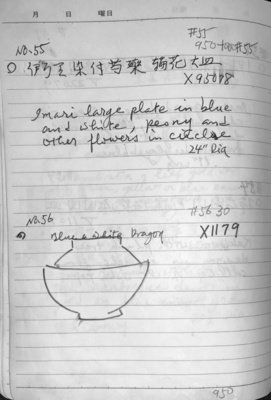 月 日 曜日
#55
No.55
伊万里染付芍薬 菊花大皿
X95098
Imari large plate in blue
and white, peony and
other flowers in circle
24" Dia
#56 30
No.56
Blue & White Dragon X1179
950